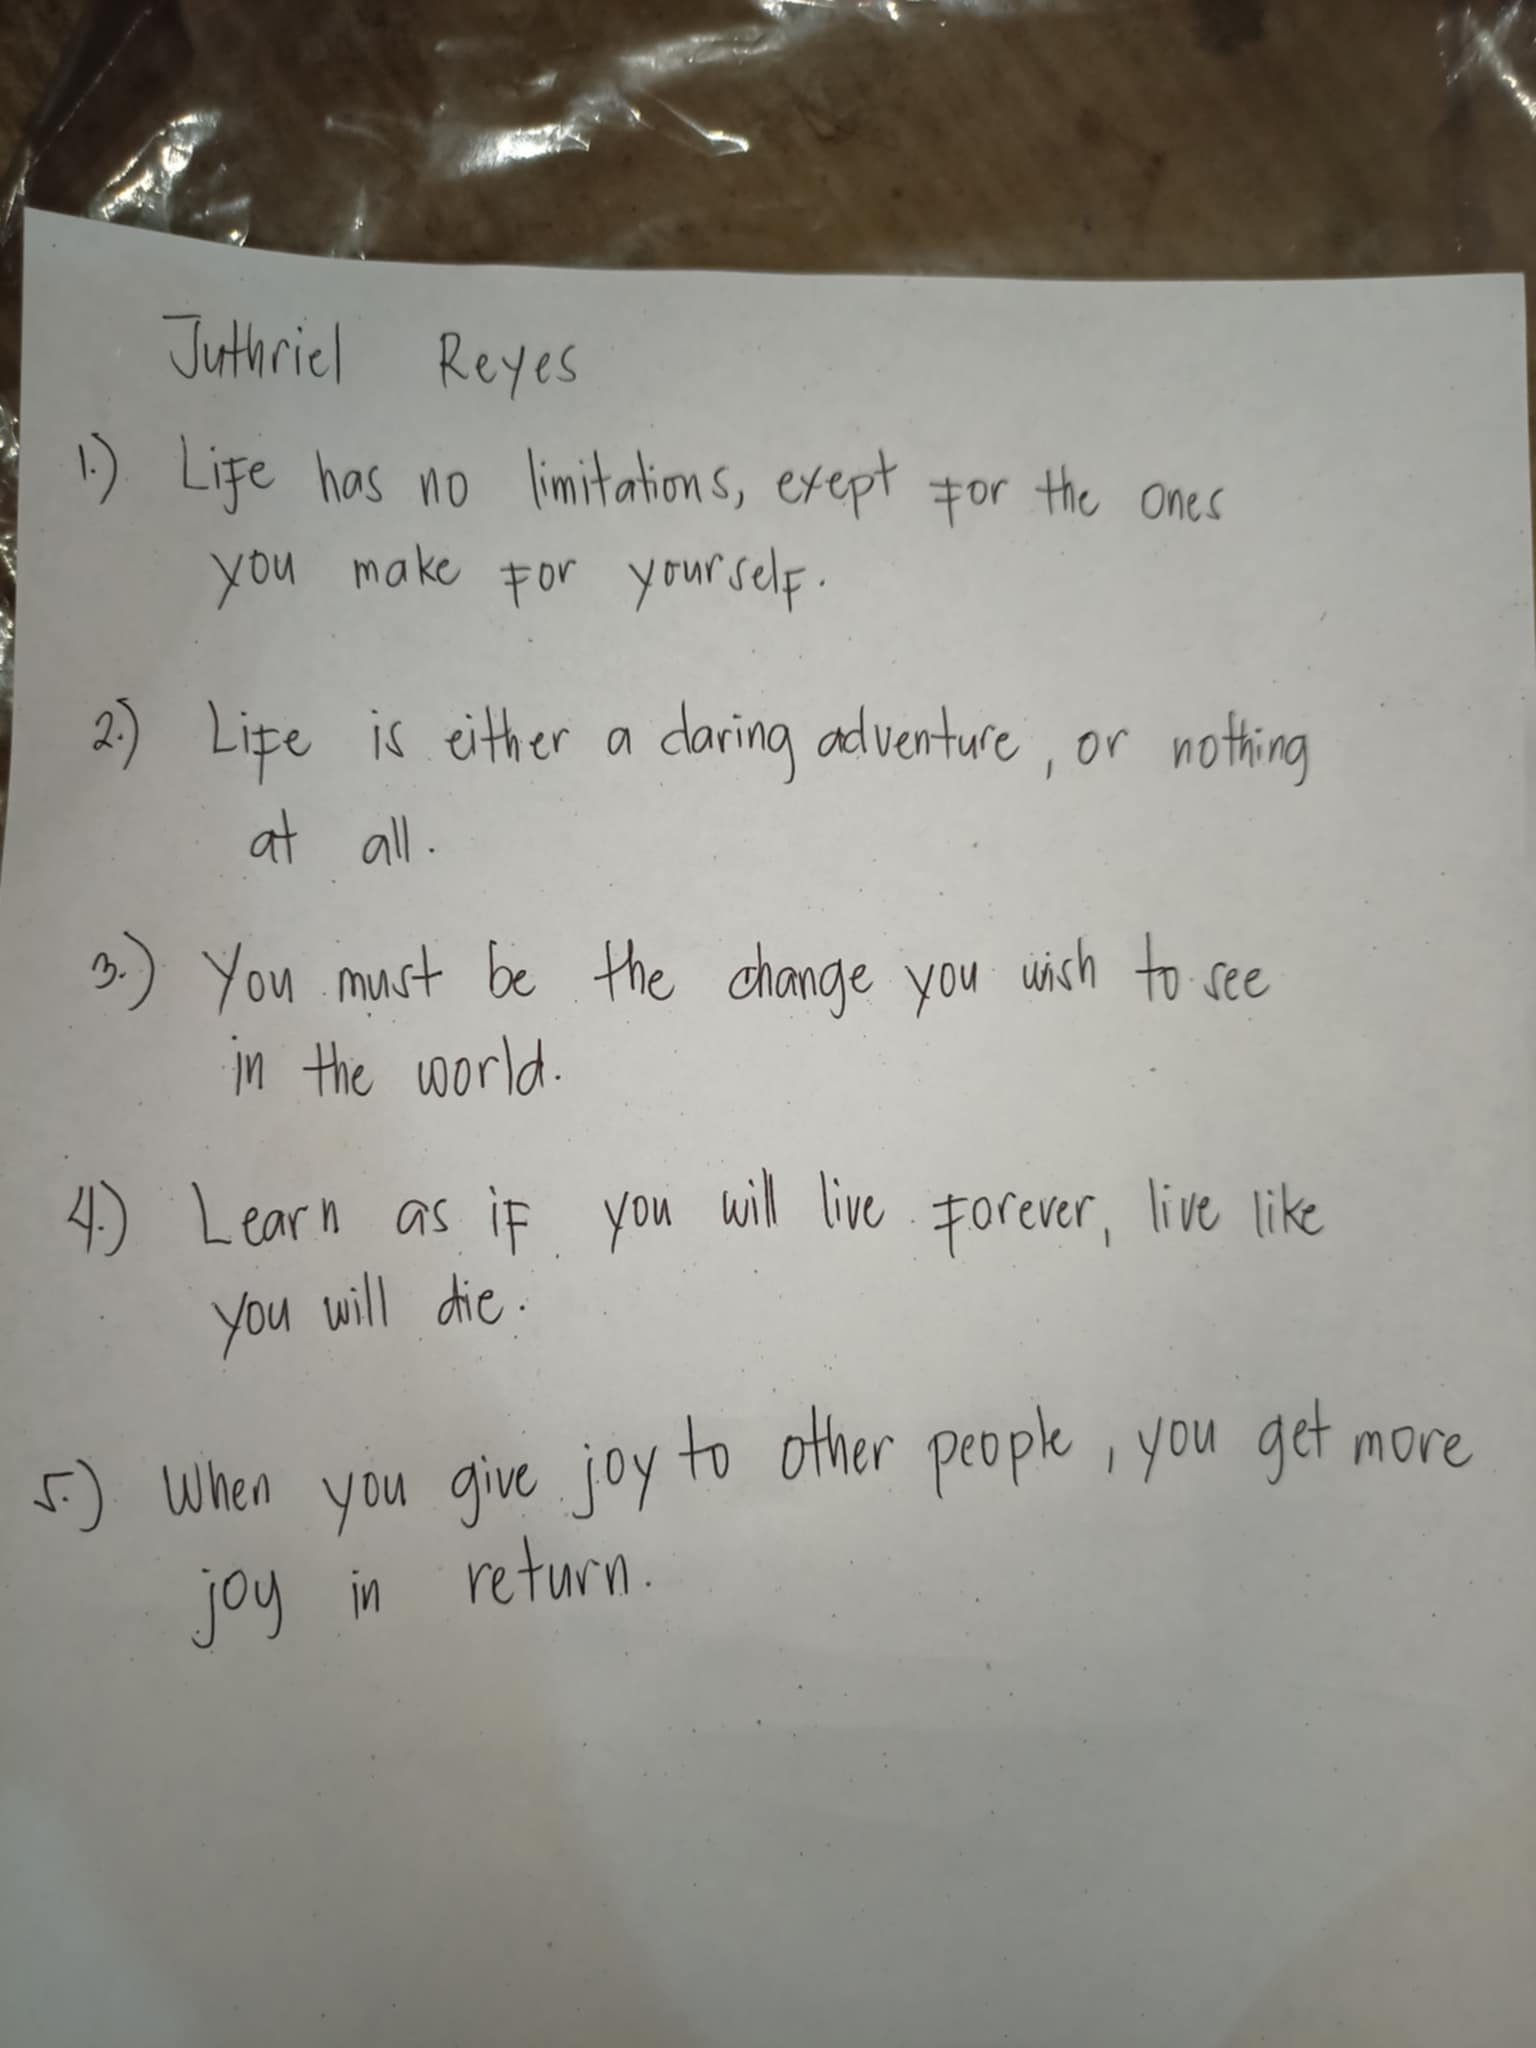 Juthriel Reyes
1.) Life has no limitations, exept for the ones
you make for yourself.
2.) Life is either a daring adventure, or nothing
at all.
3.) You must be the change you wish to see
in the world.
4.) Learn as if you will live forever, live like
you will die.
5.) When you give joy to other people, you get more
joy in return.